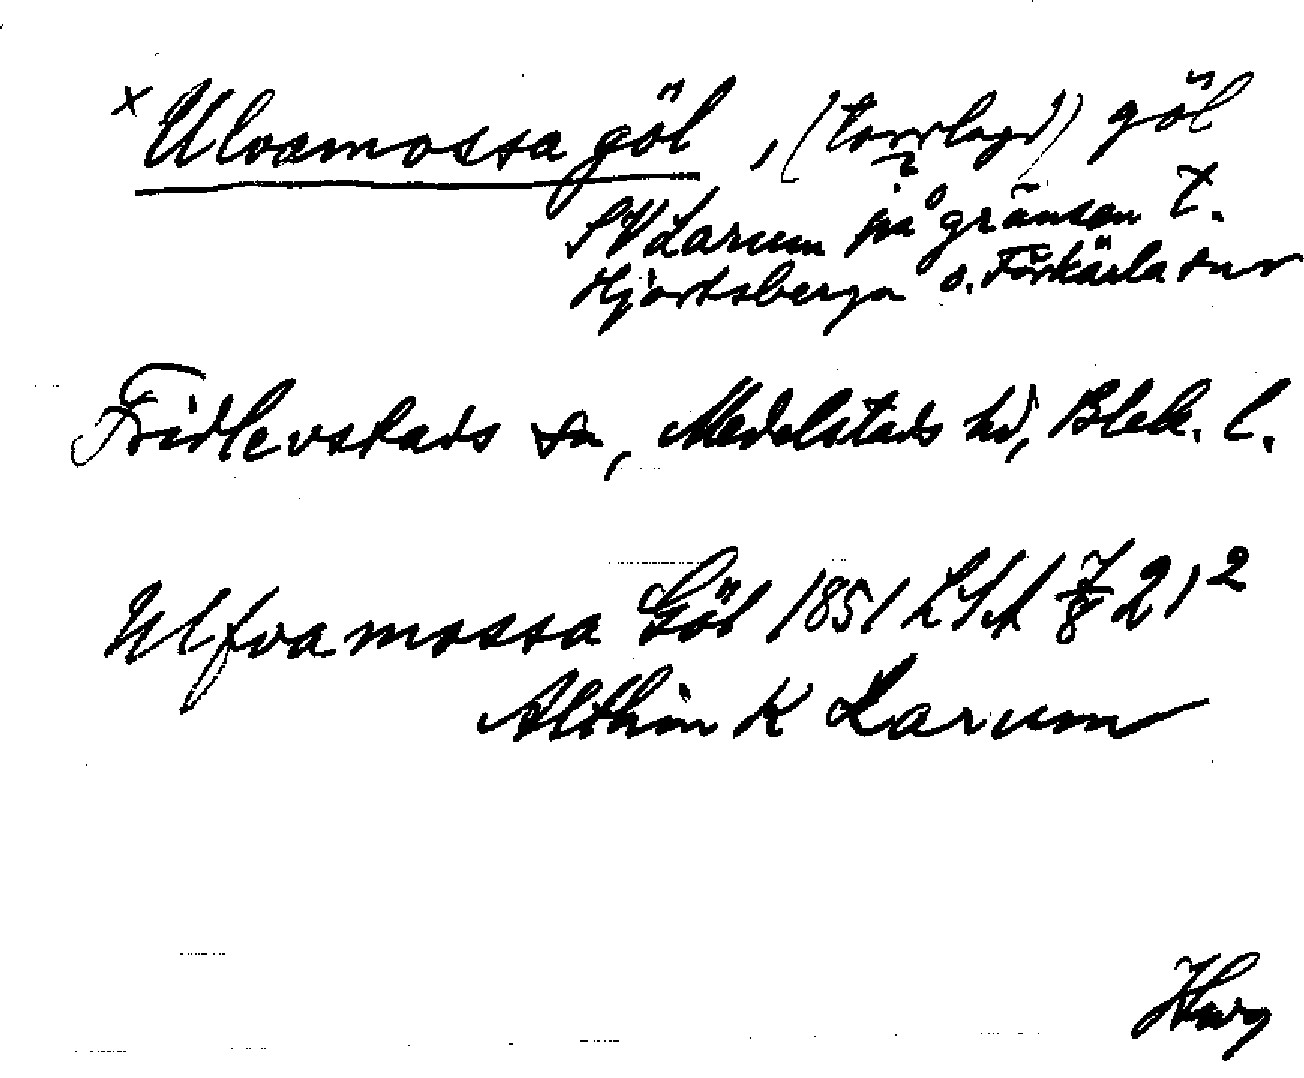 x Ulvamossa göl, (torrlagd) göl
SV Larum på gränsen t.
Hjortsberga o. Förkärla snr
Fridlevstads sn, Medelstads hd, Blek. l.
Ulfvamossa Göl 1851 LSA 21²
Althin K Larum